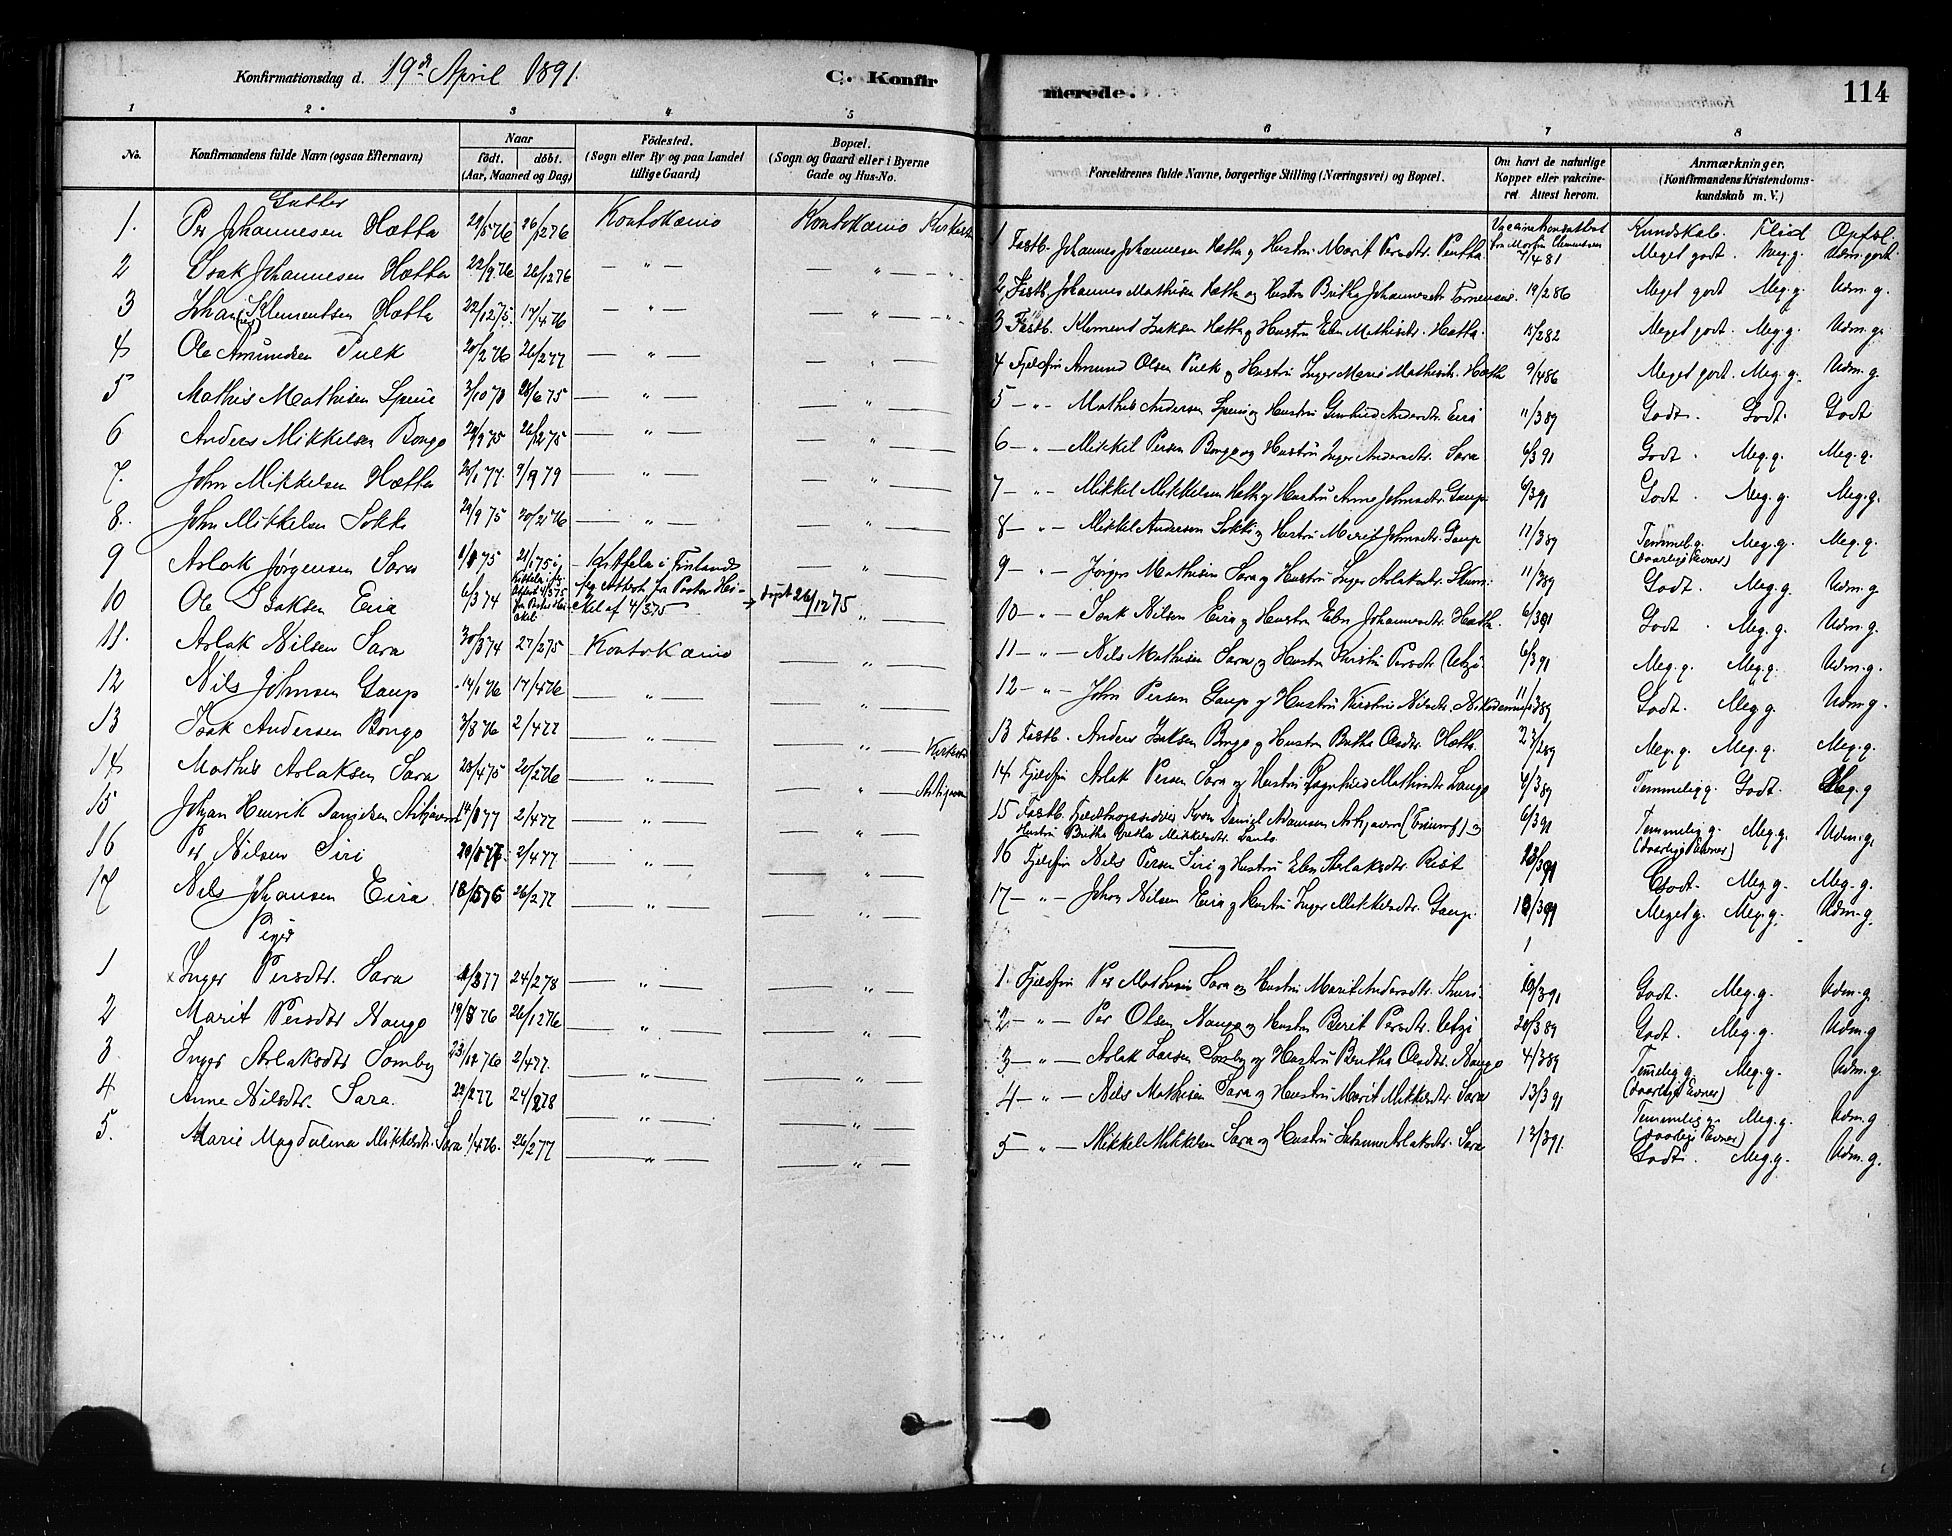 Konfirmationsdag d. 19de April 1891.
C. Konfir
merede.
114
1 2 3 4 5 6 7 8
No. Konfirmandens fulde Navn (ogsaa Efternavn) Naar født. døbt. (Aar, Maaned og Dag) Fødested. (Sogn eller By og paa Landet tillige Gaard) Bopæl. (Sogn og Gaard eller i Byerne Gade og Hus-No.
Forældrenes fulde Navne, borgerlige Stilling (Næringsvei) og Bopæl. Om havt de naturlige Kopper eller vakcineret. Attest herom. Anmærkninger. (Konfirmandens Kristendomskundskab m. V.)
Gutter
Kundskab. Flid Opførl.
1. Per Johannesen Hætta 26/1276 Koutokæino Koutokæino 1 Fastb. Johannes Johannesen Hætta og Hustru Marit Persdtr. Pentha 7/481 Meget godt. Meg. g. Udm. godt.
2 Isak Johannesen Hætta 22/976 26/1276 — " — — " — " 2 Fastb. Johannes Mathisen Hætta og Hustru Britha Johannesdtr Tornensis. 19/286 Meget godt Meg. g. Udm. g.
3 Johan Klementsen Hætta 22/1275. 17/476 — " — — " — " 3 Fastb. Klement Isaksen Hætta og Hustru Elen Mathisdtr. Hætta. 15/282 Meget godt. Meg. g. Udm. g.
4 Ole Amundsen Pulk 20/276 26/277 — " — " — 4 Fjeldfin Amund Olsen Pulk og Hustru Inger Marie Mathisdtr. Hætta 9/486 Meget godt. Meg. g. Udm. g.
5 Mathis Mathisen Spein 28/675 — " — — " — 5 — " — Mathis Andersen Spein og Hustru Gunhild Andersdtr. Eira 11/389 Godt. Godt. Godt
6 Anders Mikkelsen Bongo 29/975 26/1275 — " — — " — 6 — " — Mikkel Persen Bongo og Hustru Inger Andersdtr. Sara 6/391 Godt. Meg. g. Meg. g.
7. John Mikkelsen Hætta 9/979 — " — — " — 7 — " — Mikkel Mikkelsen Hætta og Hustru Anne Johnsdtr. Gaup. 6/391 Godt. Meg. g. Meg. g.
8. John Mikkelsen Sokki 29/975 20/276 — " — — " — 8 — " — Mikkel Andersen Sokki og Hustru Marit Johnsdtr. Gaup 11/389 Temmel. g. (daarlige Evner) Meg. g. Meg. g.
9 Aslak Jørgensen Sara Kittila i Finland — " — 9 — " — Jørgen Mathisen Sara og Hustru Inger Aslaksdtr. Skum. 11/389 Godt. Meg. g. Udm. g.
10 Ole Isaksen Eira 6/374 Attest fra Pastor af 4/375 døpt 26/1275 " — 10 — " — Isak Nilsen Eira og Hustru Elen Johannesdtr. Hætta. 6/391 Godt. Meg. g. Udm. g.
11. Aslak Nilsen Sara 30/374 27/275 Koutokæino — " — 11 — " — Nils Mathisen Sara og Hustru Kirsti Persdtr. Utzi. 6/391 Meg. g. Meg. g. Udm. g.
12 Nils Johnsen Gaup 14/176 17/476 — " — — " — 12 — " — John Persen Gaup og Hustru Kirstine Nilsdtr. Nikodemus 11/389 Godt. Meg g. Udm. g.
13 Isak Andersen Bongo 3/876 2/477 — " — — " — 13 Fastb. Anders Isaksen Bongo og Hustru Britha Olsdtr. Hætta. 23/289 Meg. g. Meg. g. Meg. g.
14 Mathis Aslaksen Sara 25/475 20/276 — " — — " — 14 Fjeldfin Aslak Persen Sara og Hustru Ragnhild Mathisdtr. Bongo 6/389 Temmelig g. Godt. Meg. g
15 Johan Henrik Danielsen 14/177 2/477 — " — — " — 15 Fastb. Daniel Adamsen (Triumf) og Hustru Britha Gretha Mikkelsdtr. 6/391 Temmelig g. (daarlige Evner) Meg. g. Udm. g.
16 Per Nilsen Siri 2/477 — " — — " — 16 Fjeldfin Nils Persen Siri og Hustru Elen Aslaksdtr. Rist 13/391 Godt. Meg. g. Meg. g.
17 Nils Johansen Eira 26/277 — " — — " — 17 — " — John Nilsen Eira og Hustru Inger Mikkelsdtr. Gaup. 13/391 Meget g. Meg. g. Udm. g.
Piger
1 × Inger Persdtr. Sara 24/278 — " — — " — 1. Fjeldfin Per Mathisen Sara og Hustru Marit Andersdtr. Thuri. Godt. Meg. g. Udm. g
2 Marit Persdtr Nango 19/876 26/1276 — " — — " — 2 — " — Per Olsen Nango og Hustru Berit Persdtr. Utzi 20/389 Godt. Meg. g. Udm. g
3 Inger Aslaksdtr Somby 23/1276 2/477. — " — — " — 3 — " — Aslak Larsen Somby og Hustru Britha Olsdtr. Nango 4/389 Temmelig g. (daarlige Evner) Meg. g. Udm. g.
4 Anne Nilsdtr. Sara. 22/277 24/278 — " — — " — 4 — " — Nils Mathisen Sara og Hustru Marit Mikkelsdtr. Sara 13/391 Temmelig g. (daarlige Evner) Meg. g. Udm. g
5. Marie Magdalena Mikkelsdtr. Sara 1/476. 26/277 — " — — " — 5 — " — Mikkel Mikkelsen Sara og Hustru Susanne Aslaksdtr. Sara 13/391. Godt. Meg. g. Udm. g.